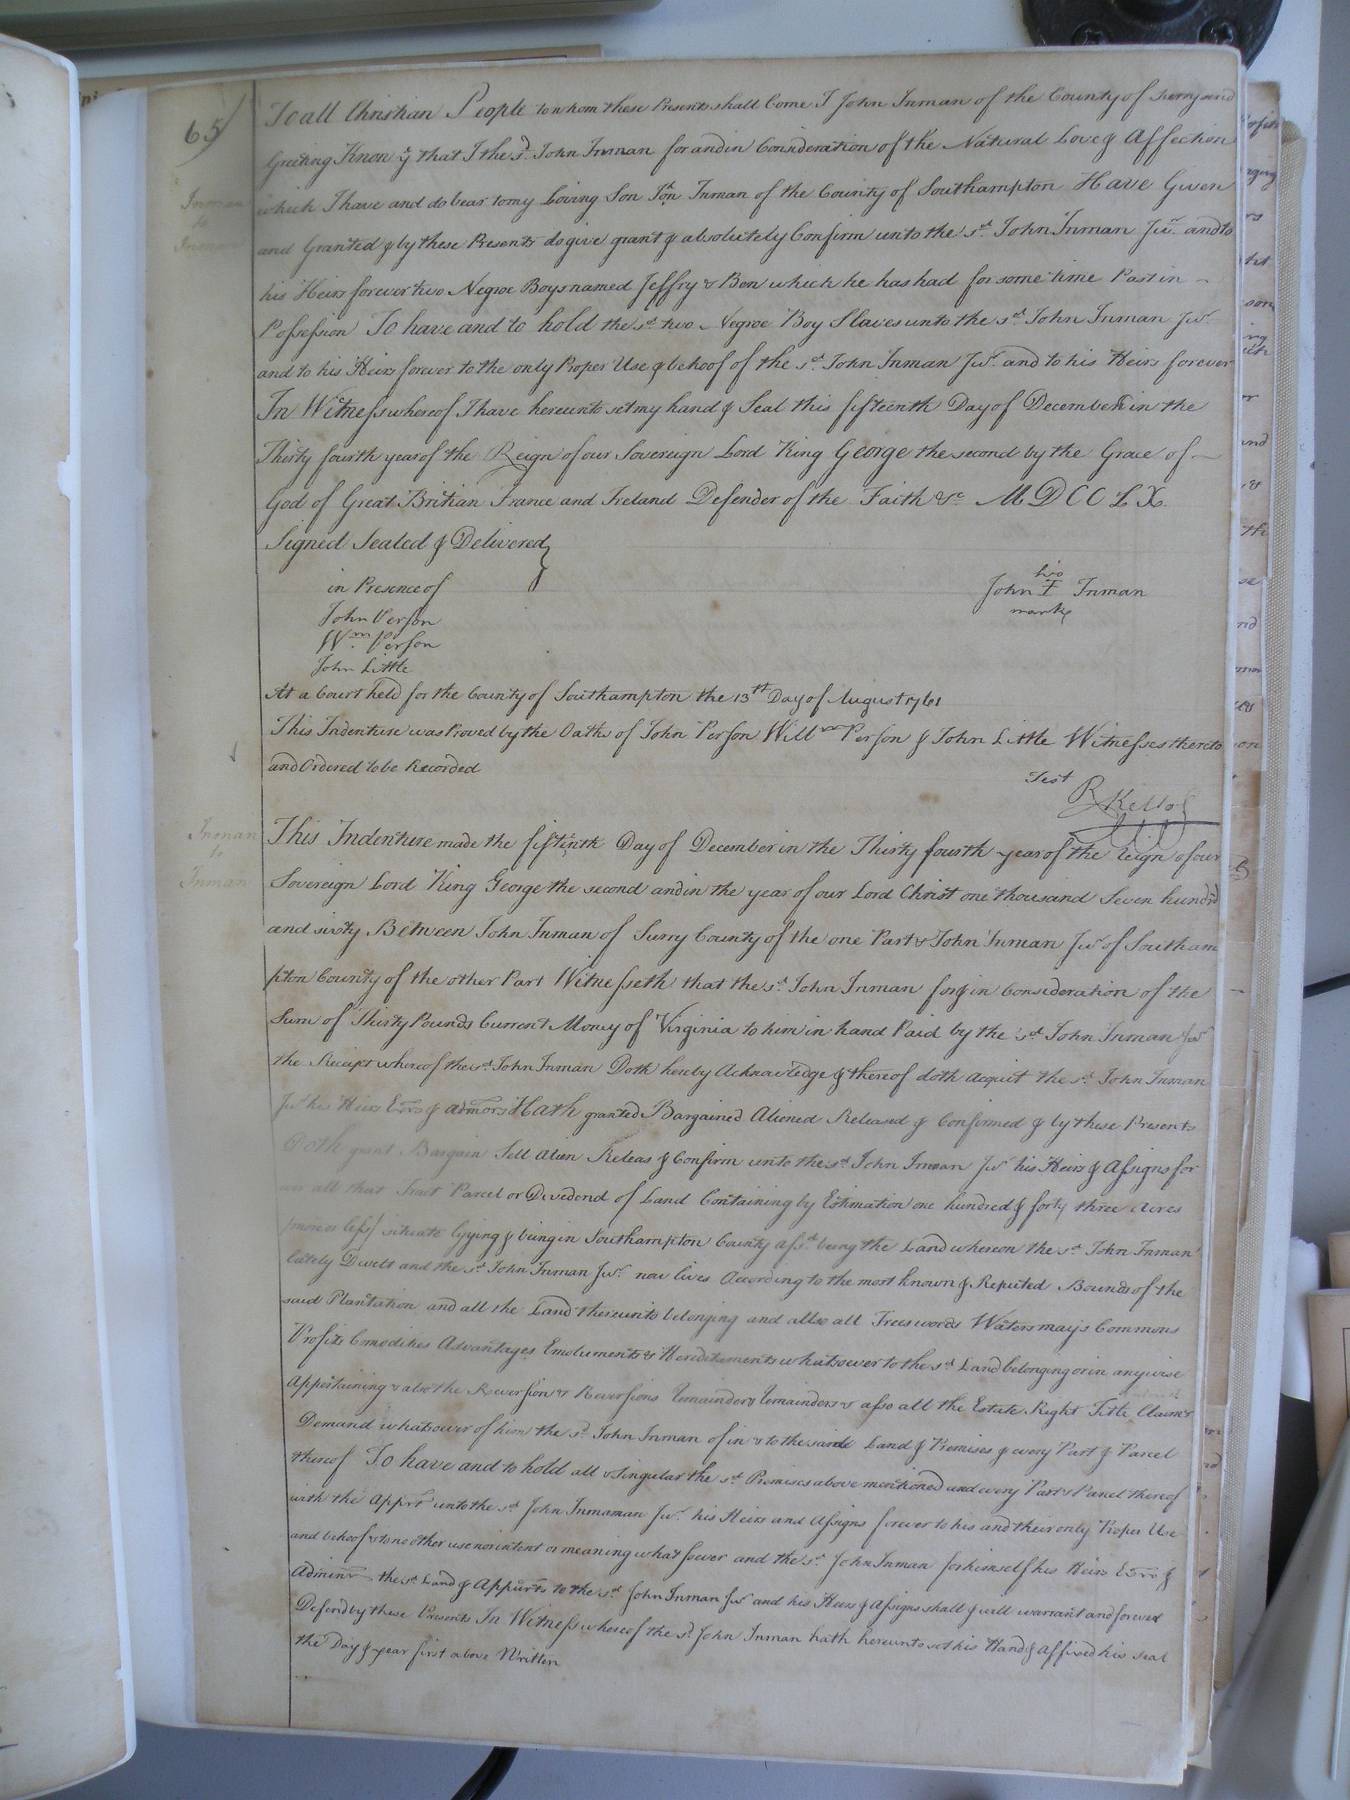 65/
To all Christian People to whom these Presents shall Come I John Inman of the County of Surry send
Greeting Know ye that I the sd. John Inman for and in Consideration of the Natural Love & Affection
Inman
to
Inman
which I have and do bear to my Loving Son Jon Inman of the County of Southampton Have Given
and Granted & by these Presents do give grant & absolutely Confirm unto the sd. John Inman Junr. and to
his Heirs forever two Negroe Boys named Jeffry & Ben which he has had for some time Past in
Possession To have and to hold the sd. two Negroe Boy Slaves unto the sd. John Inman Junr
and to his Heirs forever to the only Proper Use & behoof of the sd. John Inman Junr. and to his Heirs forever
In Witness whereof I have hereunto set my hand & Seal this fifteenth Day of December in the
Thirty fourth year of the Reign of our Sovereign Lord King George the second by the Grace of
God of Great Britian France and Ireland Defender of the Faith &c MDCCLX.
Signed Sealed & Delivered
in Presence of
John Person
Wm. Person
John Little
his
John I Inman
mark
At a Court held for the County of Southampton the 13th Day of August 1761
This Indenture was Proved by the Oaths of John Person Willm Person & John Little Witnesses thereto
and Ordered to be Recorded
Test
R Kello
Inman
to
Inman
This Indenture made the fifteenth Day of December in the Thirty fourth year of the Reign of our
Sovereign Lord King George the second and in the year of our Lord Christ one thousand Seven hundrd
and sixty Between John Inman of Surry County of the one Part & John Inman Junr of Southam
pton County of the other Part Witnesseth that the sd. John Inman for & in Consideration of the
Sum of Thirty Pounds Current Money of Virginia to him in hand Paid by the sd John Inman Junr
the Receipt whereof the sd. John Inman Doth hereby Acknowledge & thereof doth Acquit the sd. John Inman
Junr his Heirs Exrs & Admors Hath granted Bargained Aliened Released & Confirmed & by these Presents
Doth grant Bargain Sell Alien Releas & Confirm unto the sd. John Inman Junr his Heirs & Assigns for
ever all that Tract Parcel or Devedend of Land Containing by Estimation one hundred & forty three Acres
/more or less/ situate lying & being in Southampton County afsd. being the Land whereon the sd. John Inman
lately Dwelt and the sd. John Inman Junr. now lives According to the most known & Reputed Bounds of the
said Plantation and all the Land thereunto belonging and allso all Trees woods Waters ways Commons
Profits Comodities Advantages Emoluments & Hereditaments whatsoever to the sd. Land belonging or in anywise
Appertaining & also the Reversion & Reversions Remainder & Remainders & also all the Estate Right Title Claim &
Demand whatsoever of him the sd. John Inman of in & to the said Land & Premises & every Part & Parcel
thereof To have and to hold all & Singular the sd. Premises above mentioned and every Part & Parcel thereof
with the Appurt unto the sd John Inmaman Junr. his Heirs and Assigns forever to his and their only Proper Use
and behoof & to no other use nor intent or meaning whatsoever and the sd. John Inman for himself his Heirs Exrs &
Adminrs the sd. Land & Appurts to the sd John Inman Junr and his Heirs & Assigns shall & will warrant and forever
Defend by these Presents In Witness whereof the sd. John Inman hath hereunto set his Hand & Affixed his seal
the Day & year first above Written